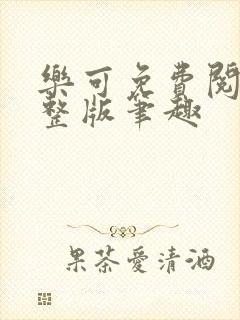 樂可免費閱
整版筆趣
果茶愛清酒